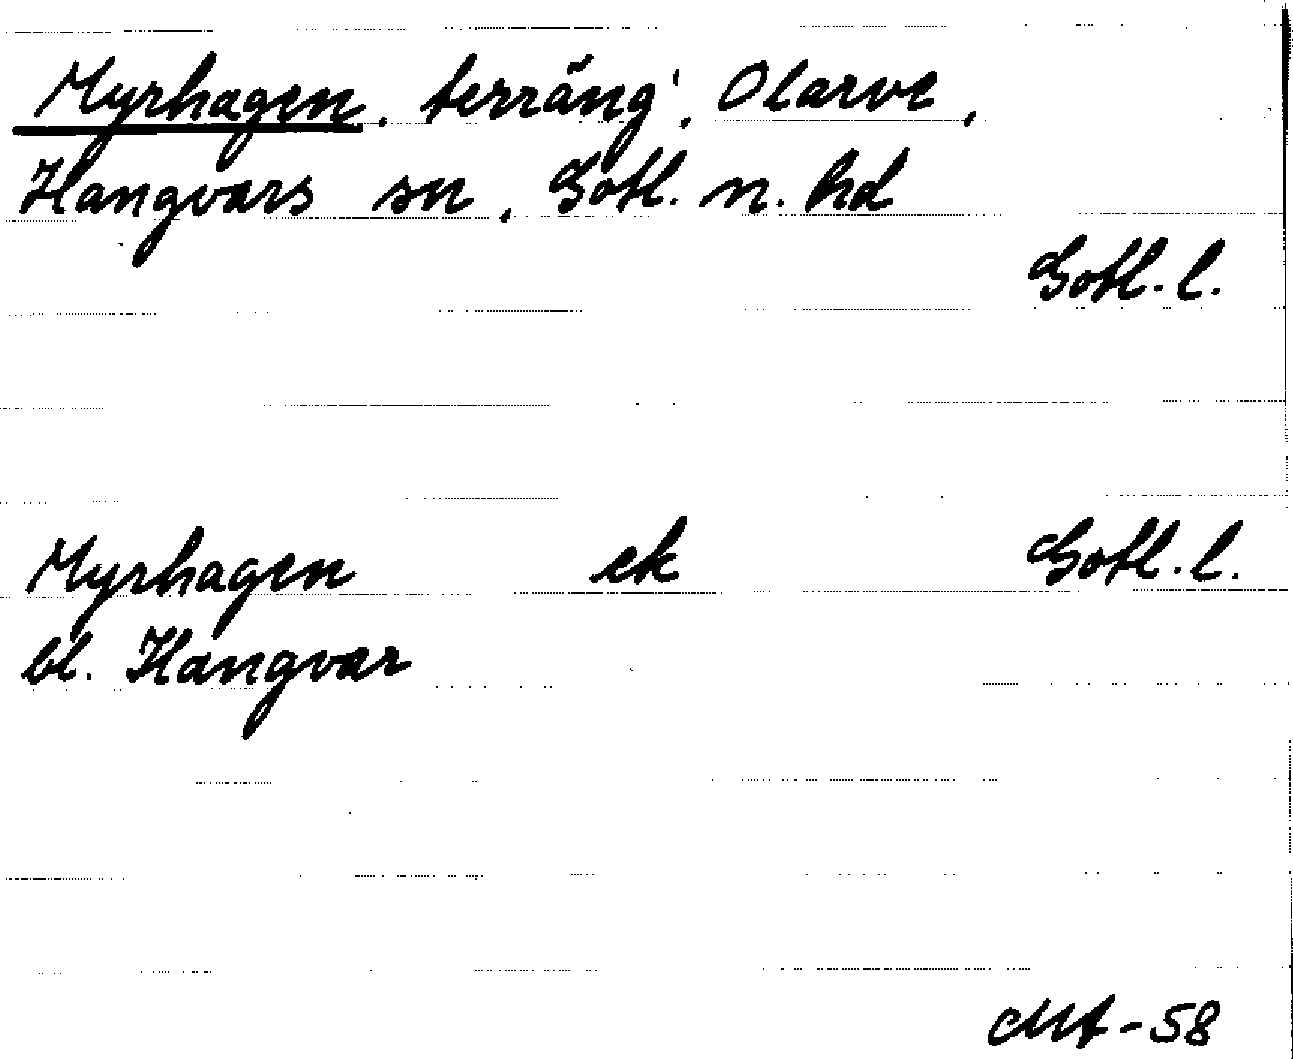 Myrhagen, terräng', Olarve,
Hangvars sn, Gotl. n. hd
Gotl. l.
Myrhagen ek Gotl. l.
bl. Hangvar
-58